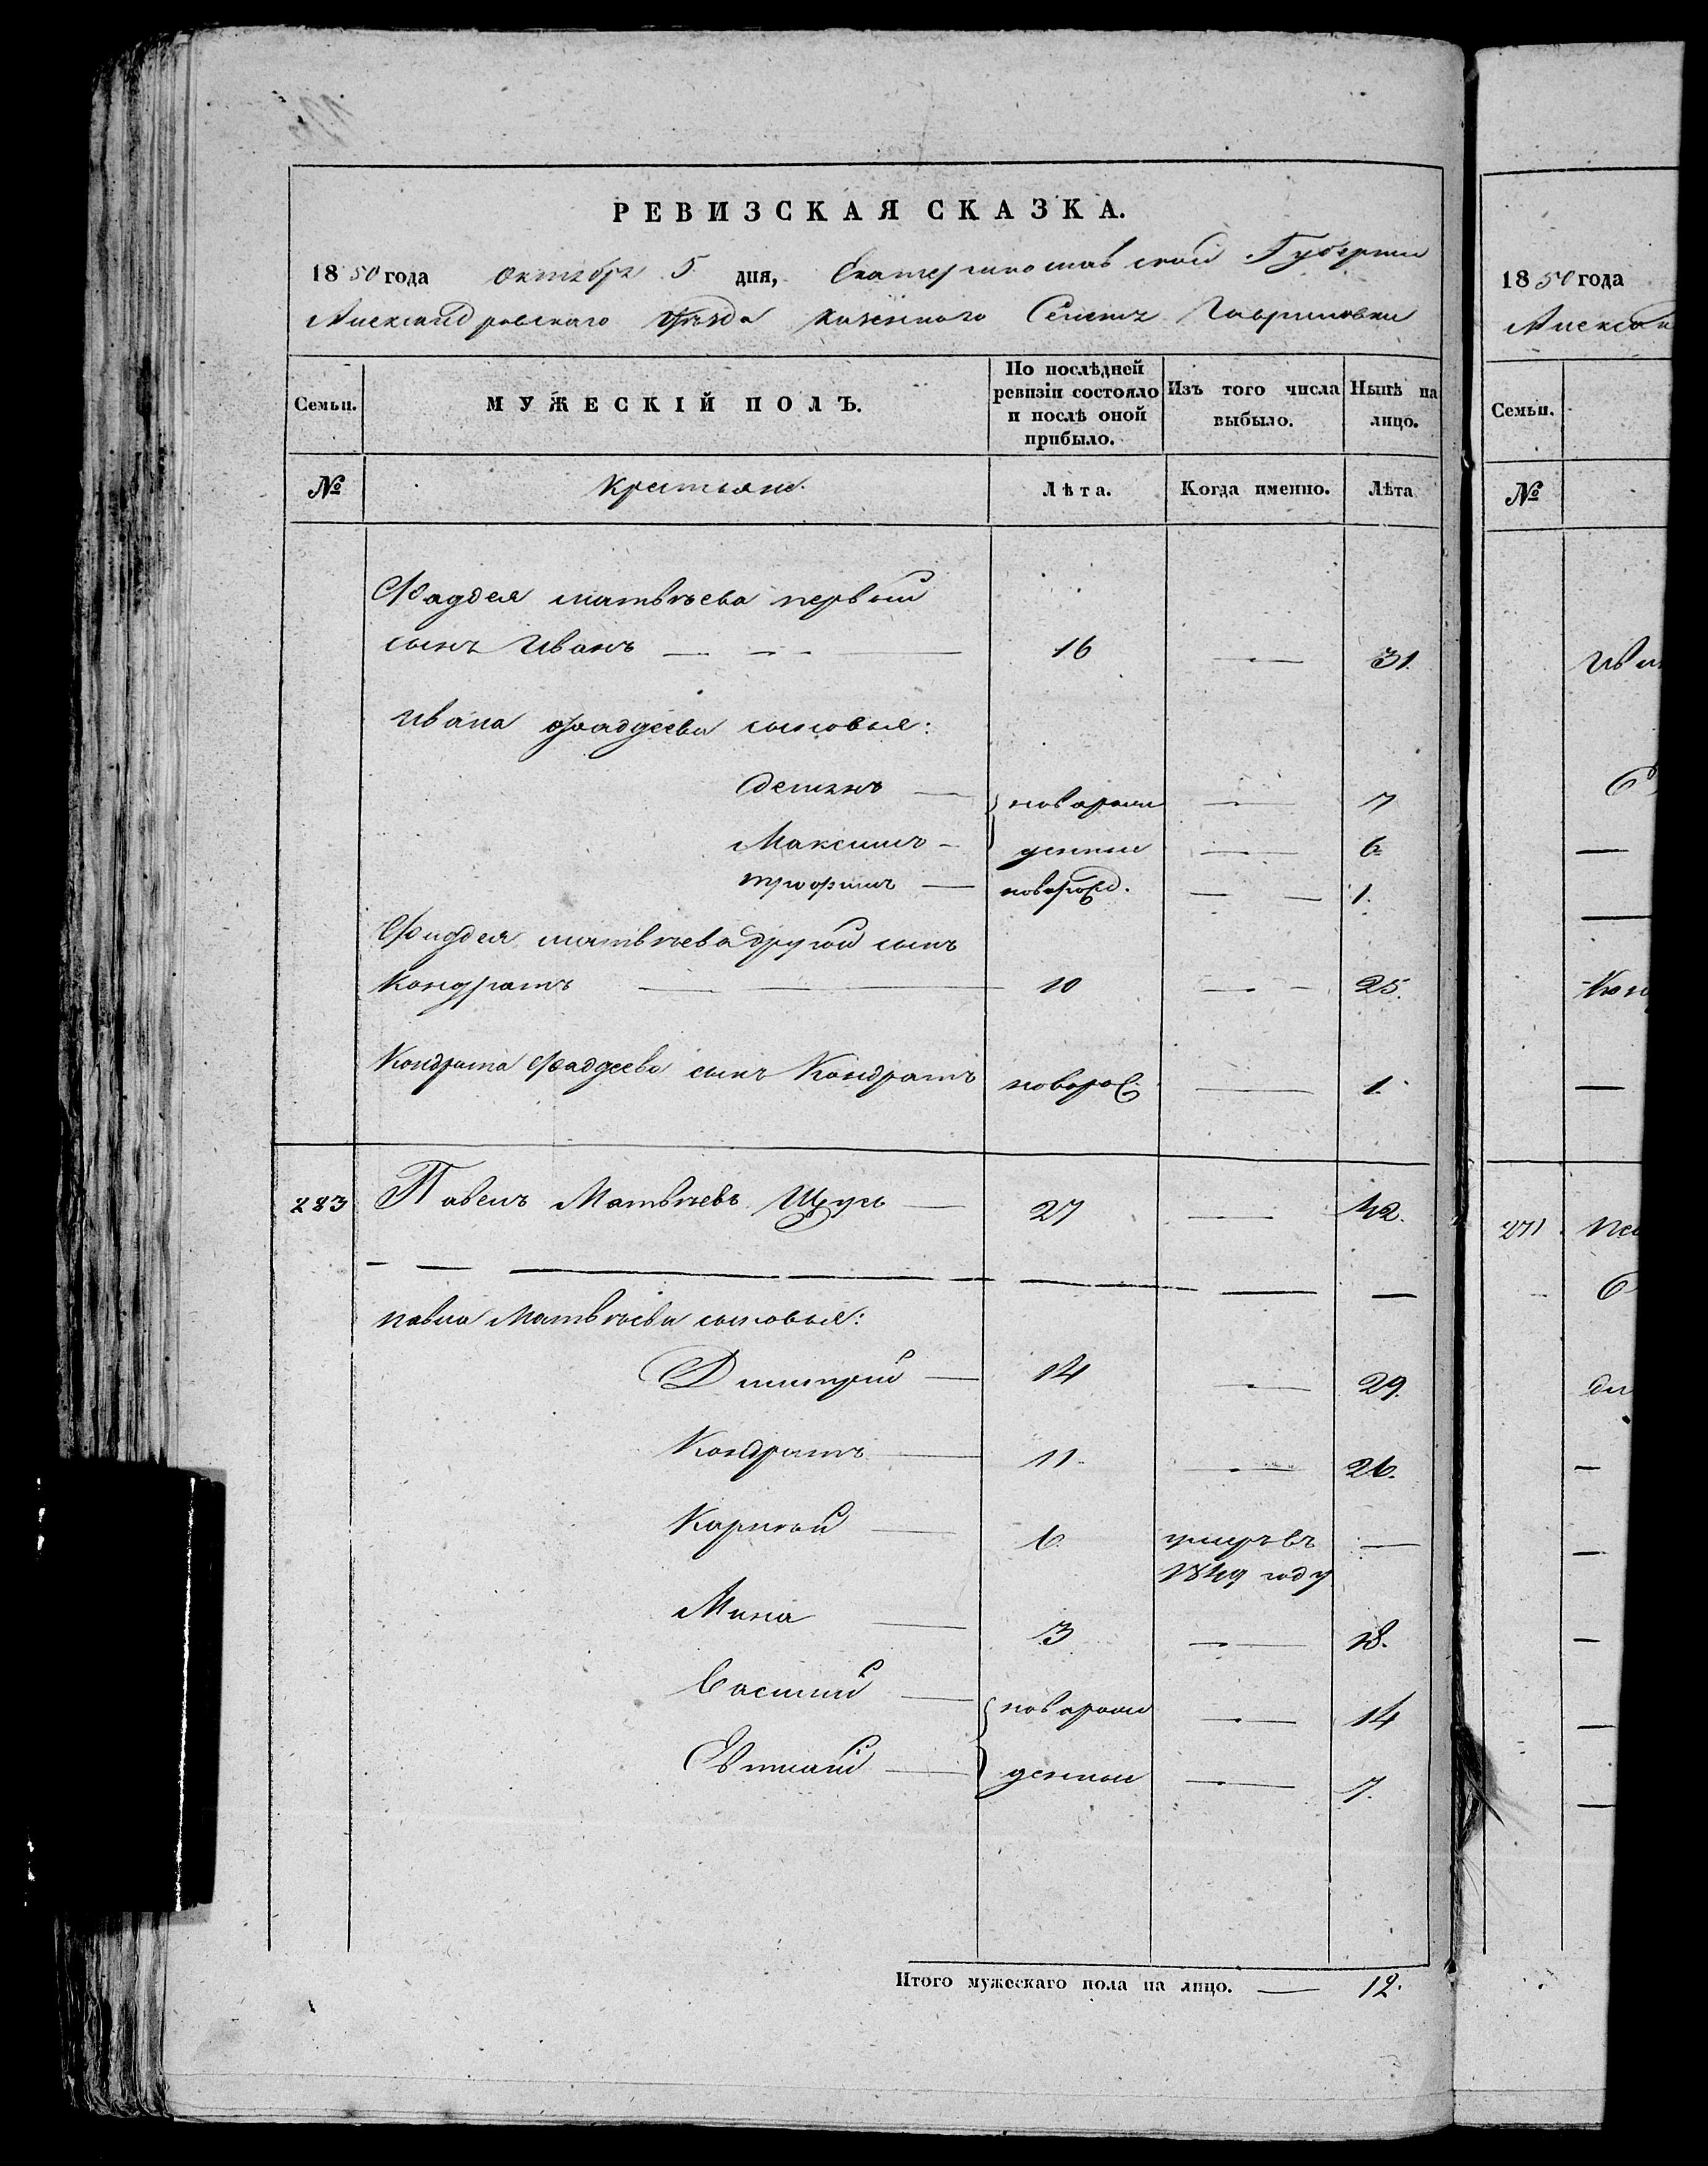 РЕВИЗСКАЯ СКАЗКА.
1850 года октября 5 дня, Екатеринославской Губернии
Александровскаго уѣзда казеннаго Селенія Гавриловки
Семьи.
МУЖЕСКІЙ ПОЛЪ.
По послѣдней ревизіи состояло и послѣ оной прибыло.
Изъ того числа выбыло.
Нынѣ на лицо.
№ Крестьяне. Лѣта. Когда именно. Лѣта
Фаддея матвѣева первый
сынъ Иванъ — 16 — 31.
Ивана фаддеева сыновья:
Демянъ — новорож — 7
Максимъ — денные — 6
трофимъ — новорожд. — 1.
Фаддея матвѣева другой сынъ
Кондратъ — 10 — 25.
Кондрата Фаддеева сынъ Кондратъ новорож. — 1.
283 Павелъ Матвѣевъ Щусь — 27 — 42.
павла Матвѣева сыновья:
Димитрій — 14 — 29.
Кондратъ — 11. — 26.
Карпъ — 6 умеръ въ —
1849 году
Мина — 3 — 18.
Василій — новорож — 14
— денные — 7.
Итого мужескаго пола на лицо. — 12.
1850 года
Алексан
Семьи.
№
271